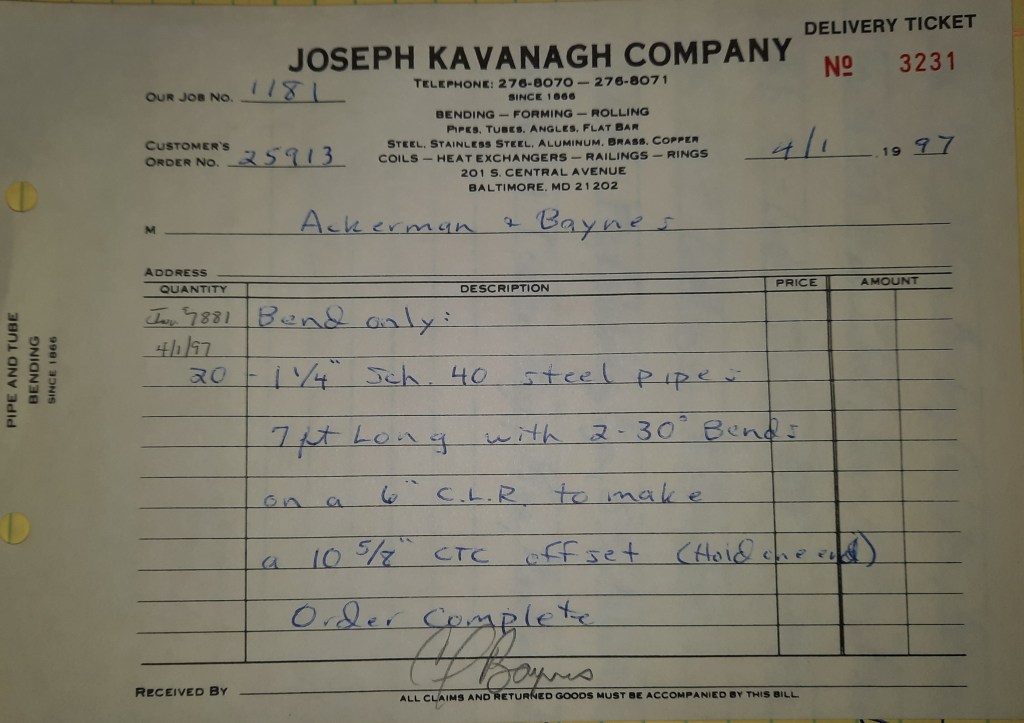 DELIVERY TICKET
JOSEPH KAVANAGH COMPANY
Nº 3231
TELEPHONE: 276-8070 — 276-8071
SINCE 1866
OUR JOB NO. 1181
BENDING — FORMING — ROLLING
PIPES, TUBES, ANGLES, FLAT BAR
STEEL, STAINLESS STEEL, ALUMINUM, BRASS, COPPER
CUSTOMER'S
ORDER NO. 25913
COILS — HEAT EXCHANGERS — RAILINGS — RINGS
4/1 19 97
201 S. CENTRAL AVENUE
BALTIMORE, MD 21202
M Ackerman & Baynes
ADDRESS
QUANTITY DESCRIPTION PRICE AMOUNT
Inv. 7881 Bend only:
4/1/97
20 - 1 1/4" Sch. 40 steel pipes
7 ft Long with 2-30° Bends
on a 6" C.L.R. to make
a 10 5/8" CTC offset (Hold one end)
Order Complete
Baynes
RECEIVED BY
ALL CLAIMS AND RETURNED GOODS MUST BE ACCOMPANIED BY THIS BILL
PIPE AND TUBE
BENDING
SINCE 1866